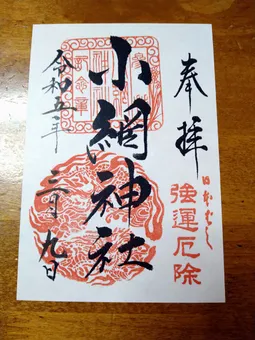 奉拝
強運厄除
小網神社
令和五年
三月九日